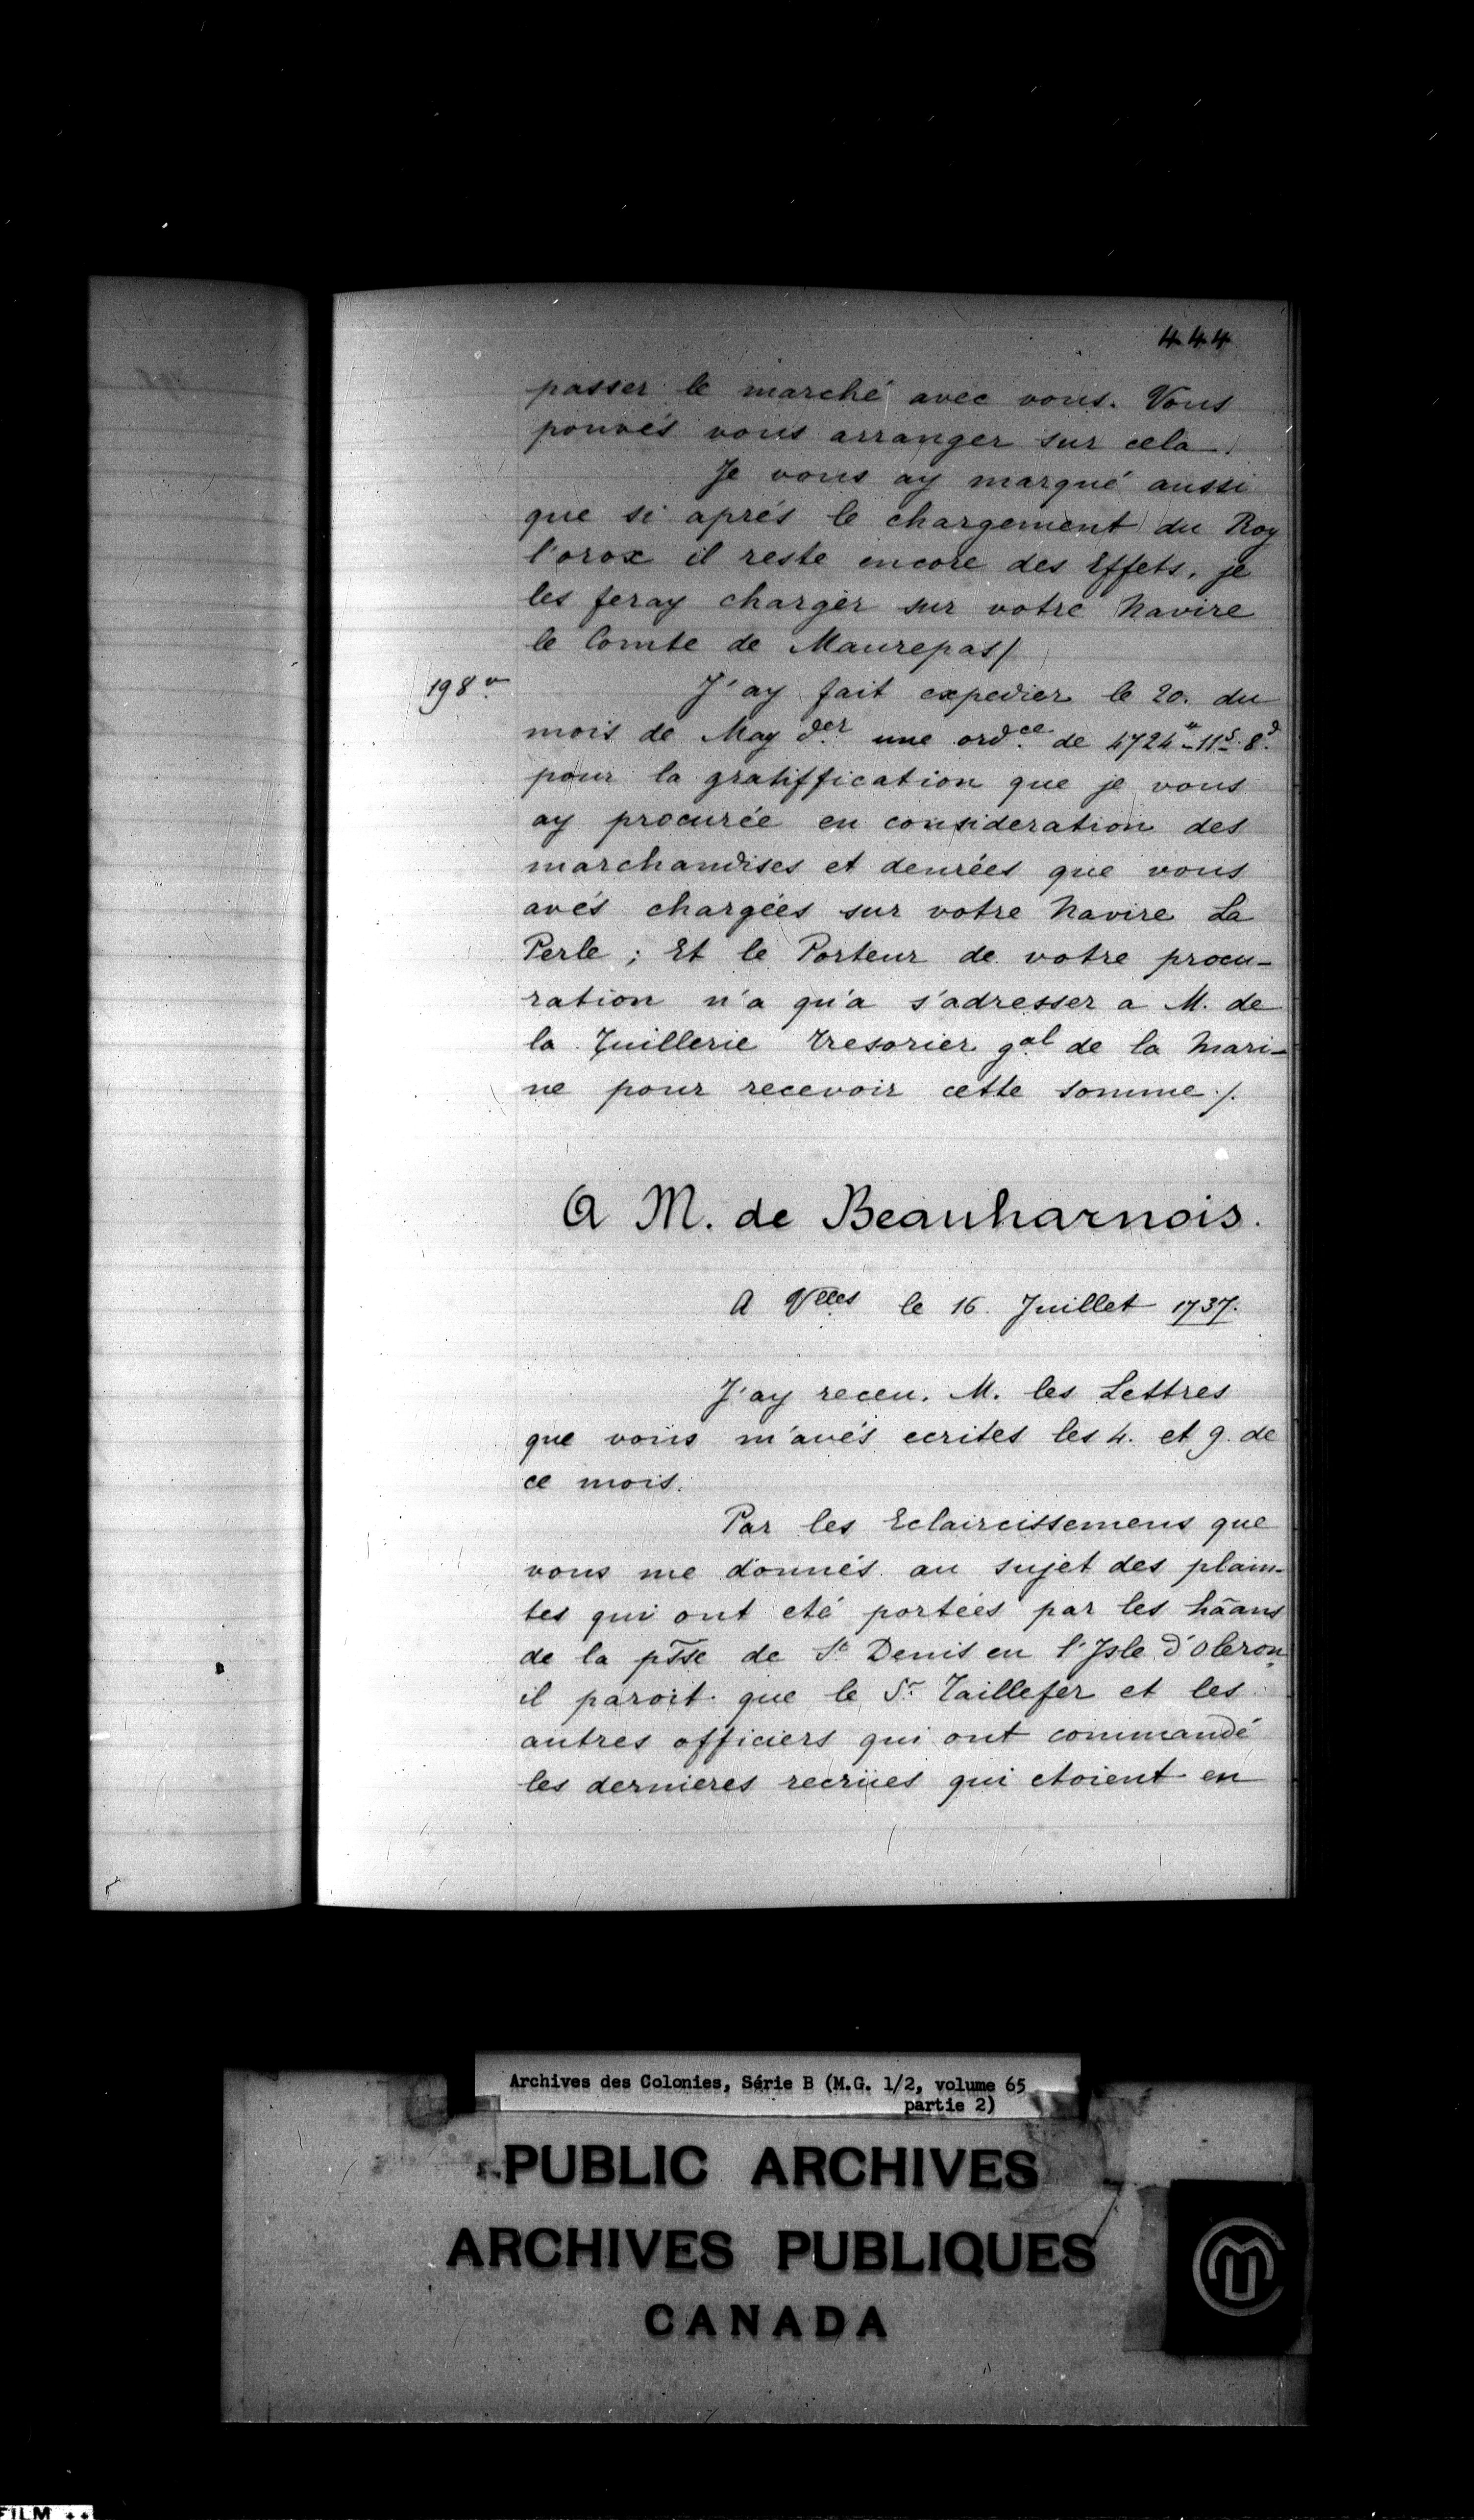 444
passer le marché avec vous. Vous
pouvés vous arranger sur cela.
Je vous ay marqué aussi
que si aprés le chargement du Roy
l'orox il reste encore des Effets, je
les feray charger sur votre Navire
le Comte de Maurepas/
198 v.
J'ay fait expedier le 20. du
mois de May der une ordce de 4724tt 11s 8d
pour la gratiffication que je vous
ay procurée en consideration des
marchandises et denrées que vous
avés chargées sur votre Navire La
Perle ; Et le Porteur de votre procu-
ration n'a qu'a s'adresser a M. de
la Tuillerie Tresorier gal de la Mari-
ne pour recevoir cette somme ./.
A M. de Beauharnois.
A Vlles le 16. Juillet 1737.
J'ay receu. M. les Lettres
que vous m'avés ecrites les 4. et 9. de
ce mois.
Par les Eclaircissemens que
vous me donnés au sujet des plain-
tes qui ont eté portées par les hãans
de la psse de St Denis en l'Isle d'Oleron
il paroit que le Sr Taillefer et les
autres officiers qui ont commandé
les dernieres recrües qui etoient en
Archives des Colonies, Série B (M.G. 1/2, volume 65
partie 2)
PUBLIC ARCHIVES
ARCHIVES PUBLIQUES
CANADA
FILM